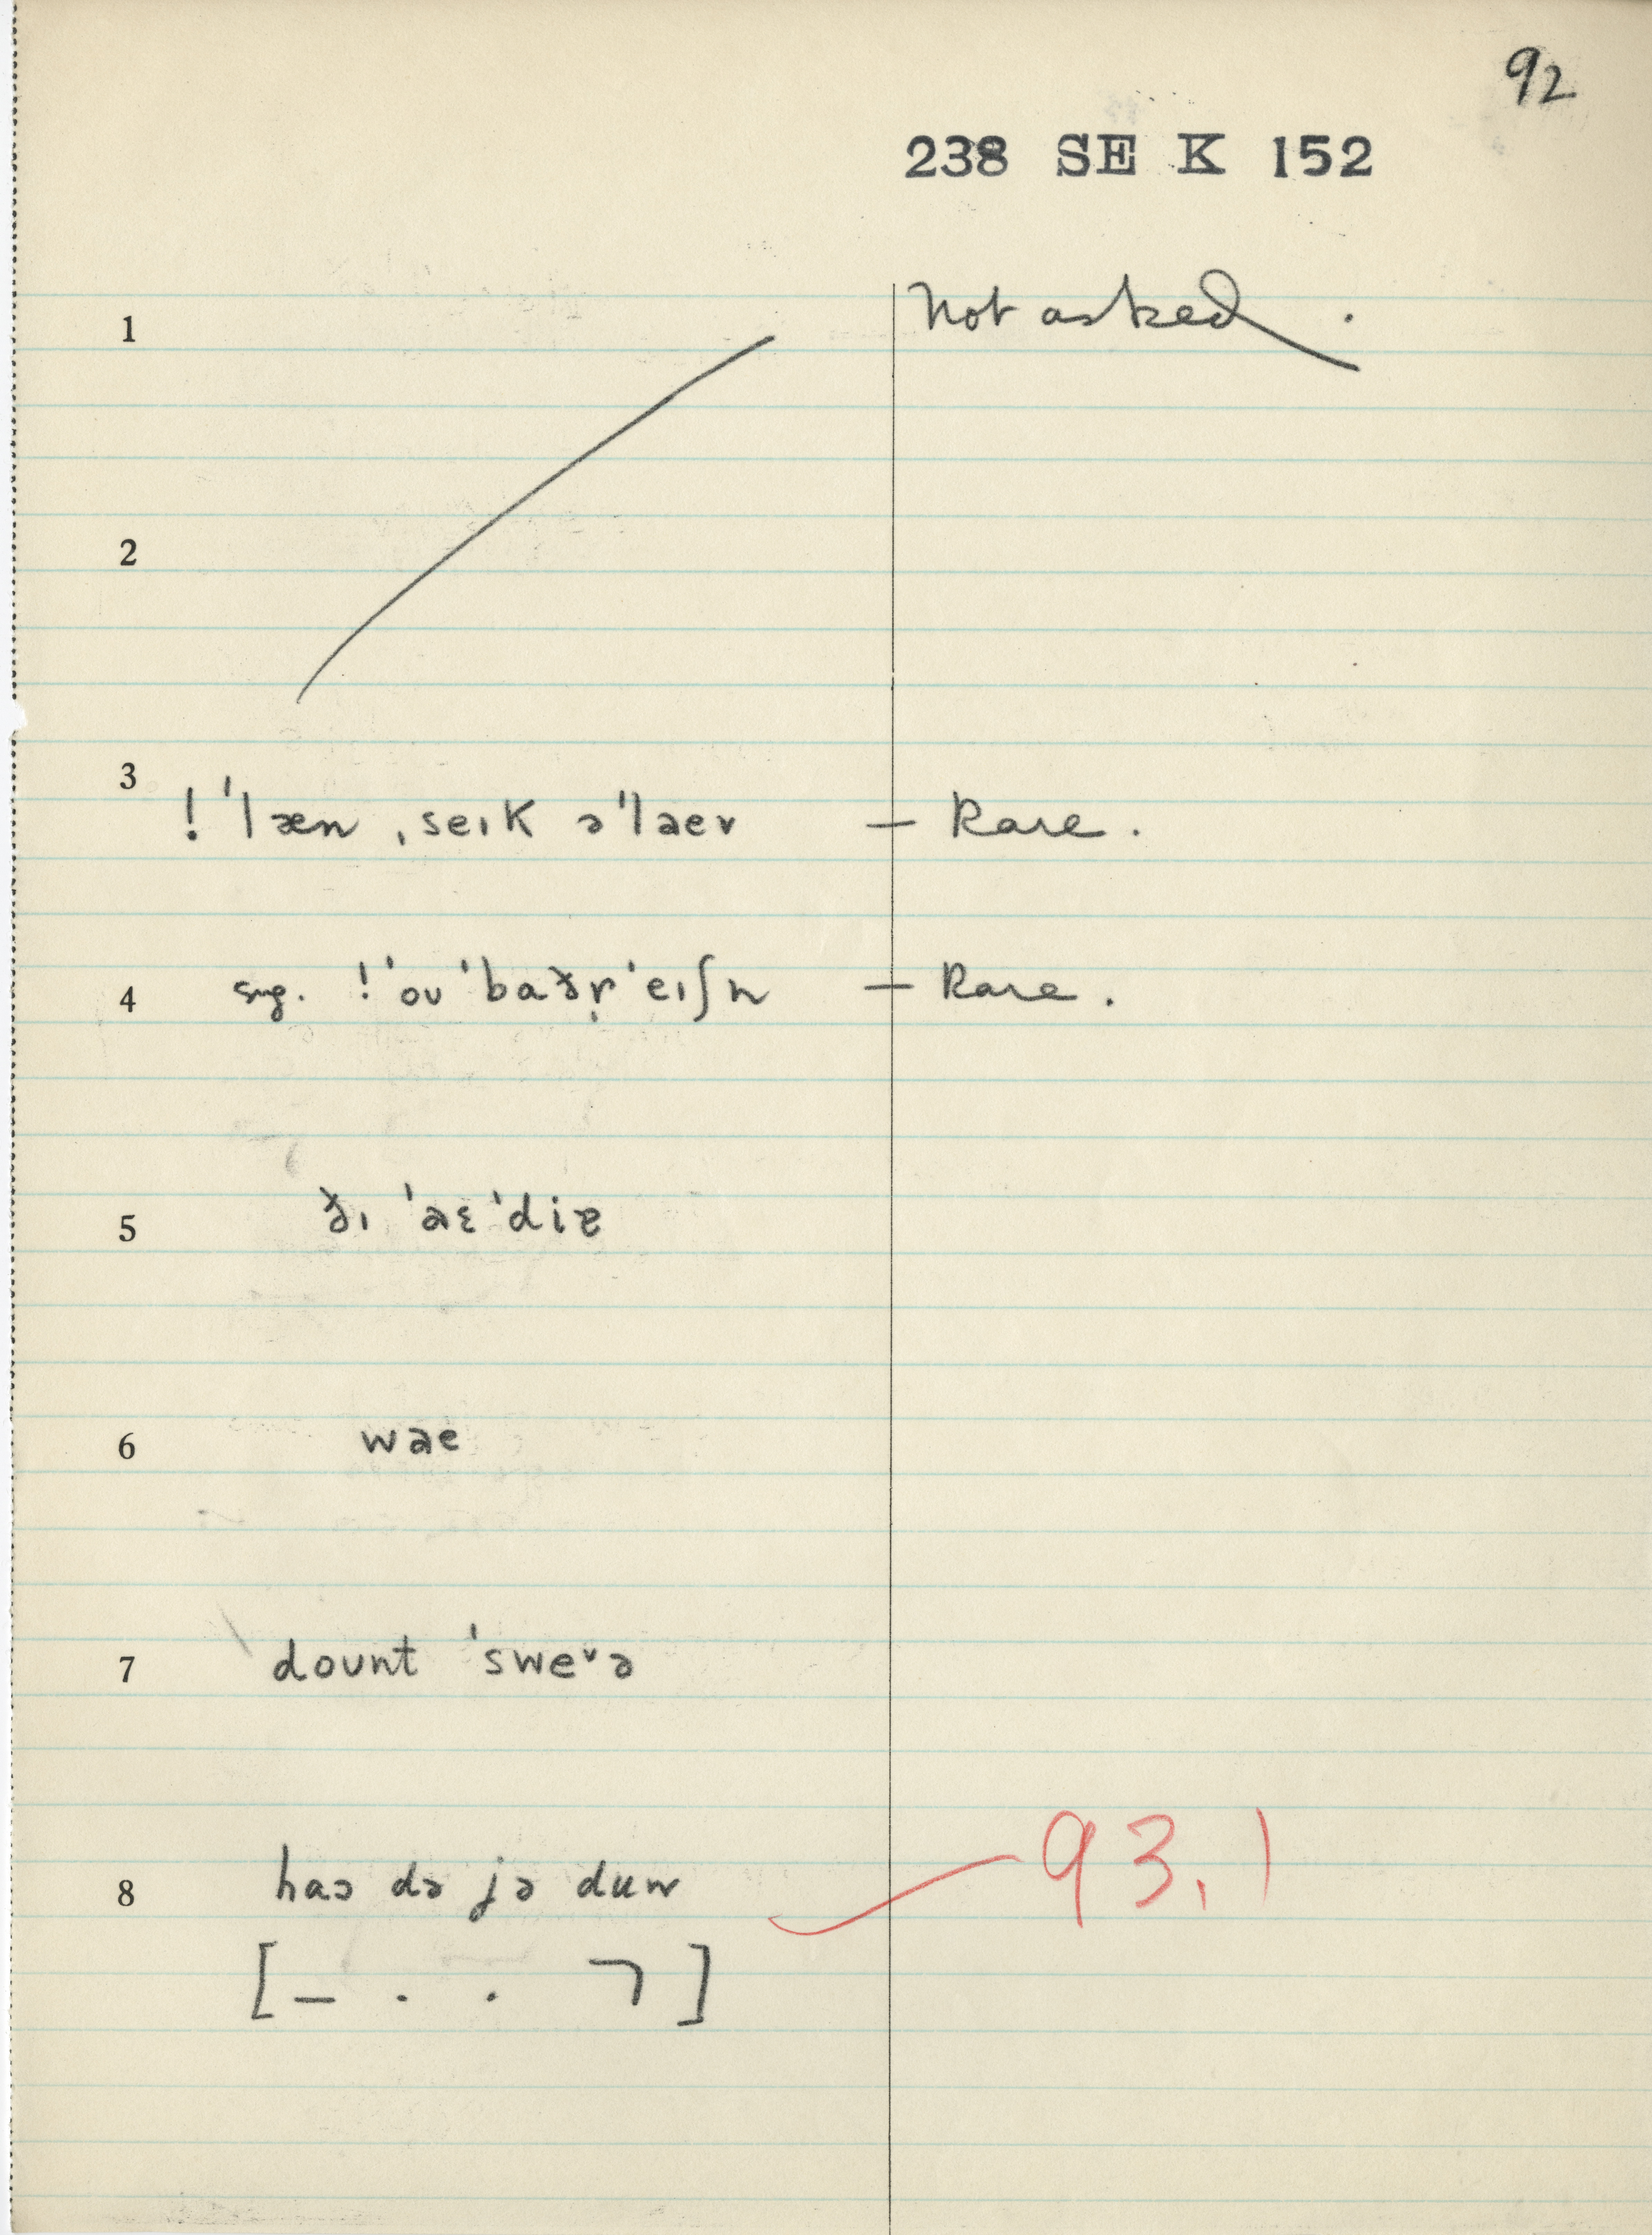 92
238 SE K 152
1 Not asked.
2
3 ! ˈlæn ˌseɪk əˈlaev — Rare.
4 sug. ! ˈoʊ ˈbaðr̩ ˈeɪʃn — Rare.
5 ðɪ ˈaɛˈdiɐ
6 wae
7 doʊnt ˈsweᵛə
8 haɔ də jə duw 93.1
[– . . ㄱ]